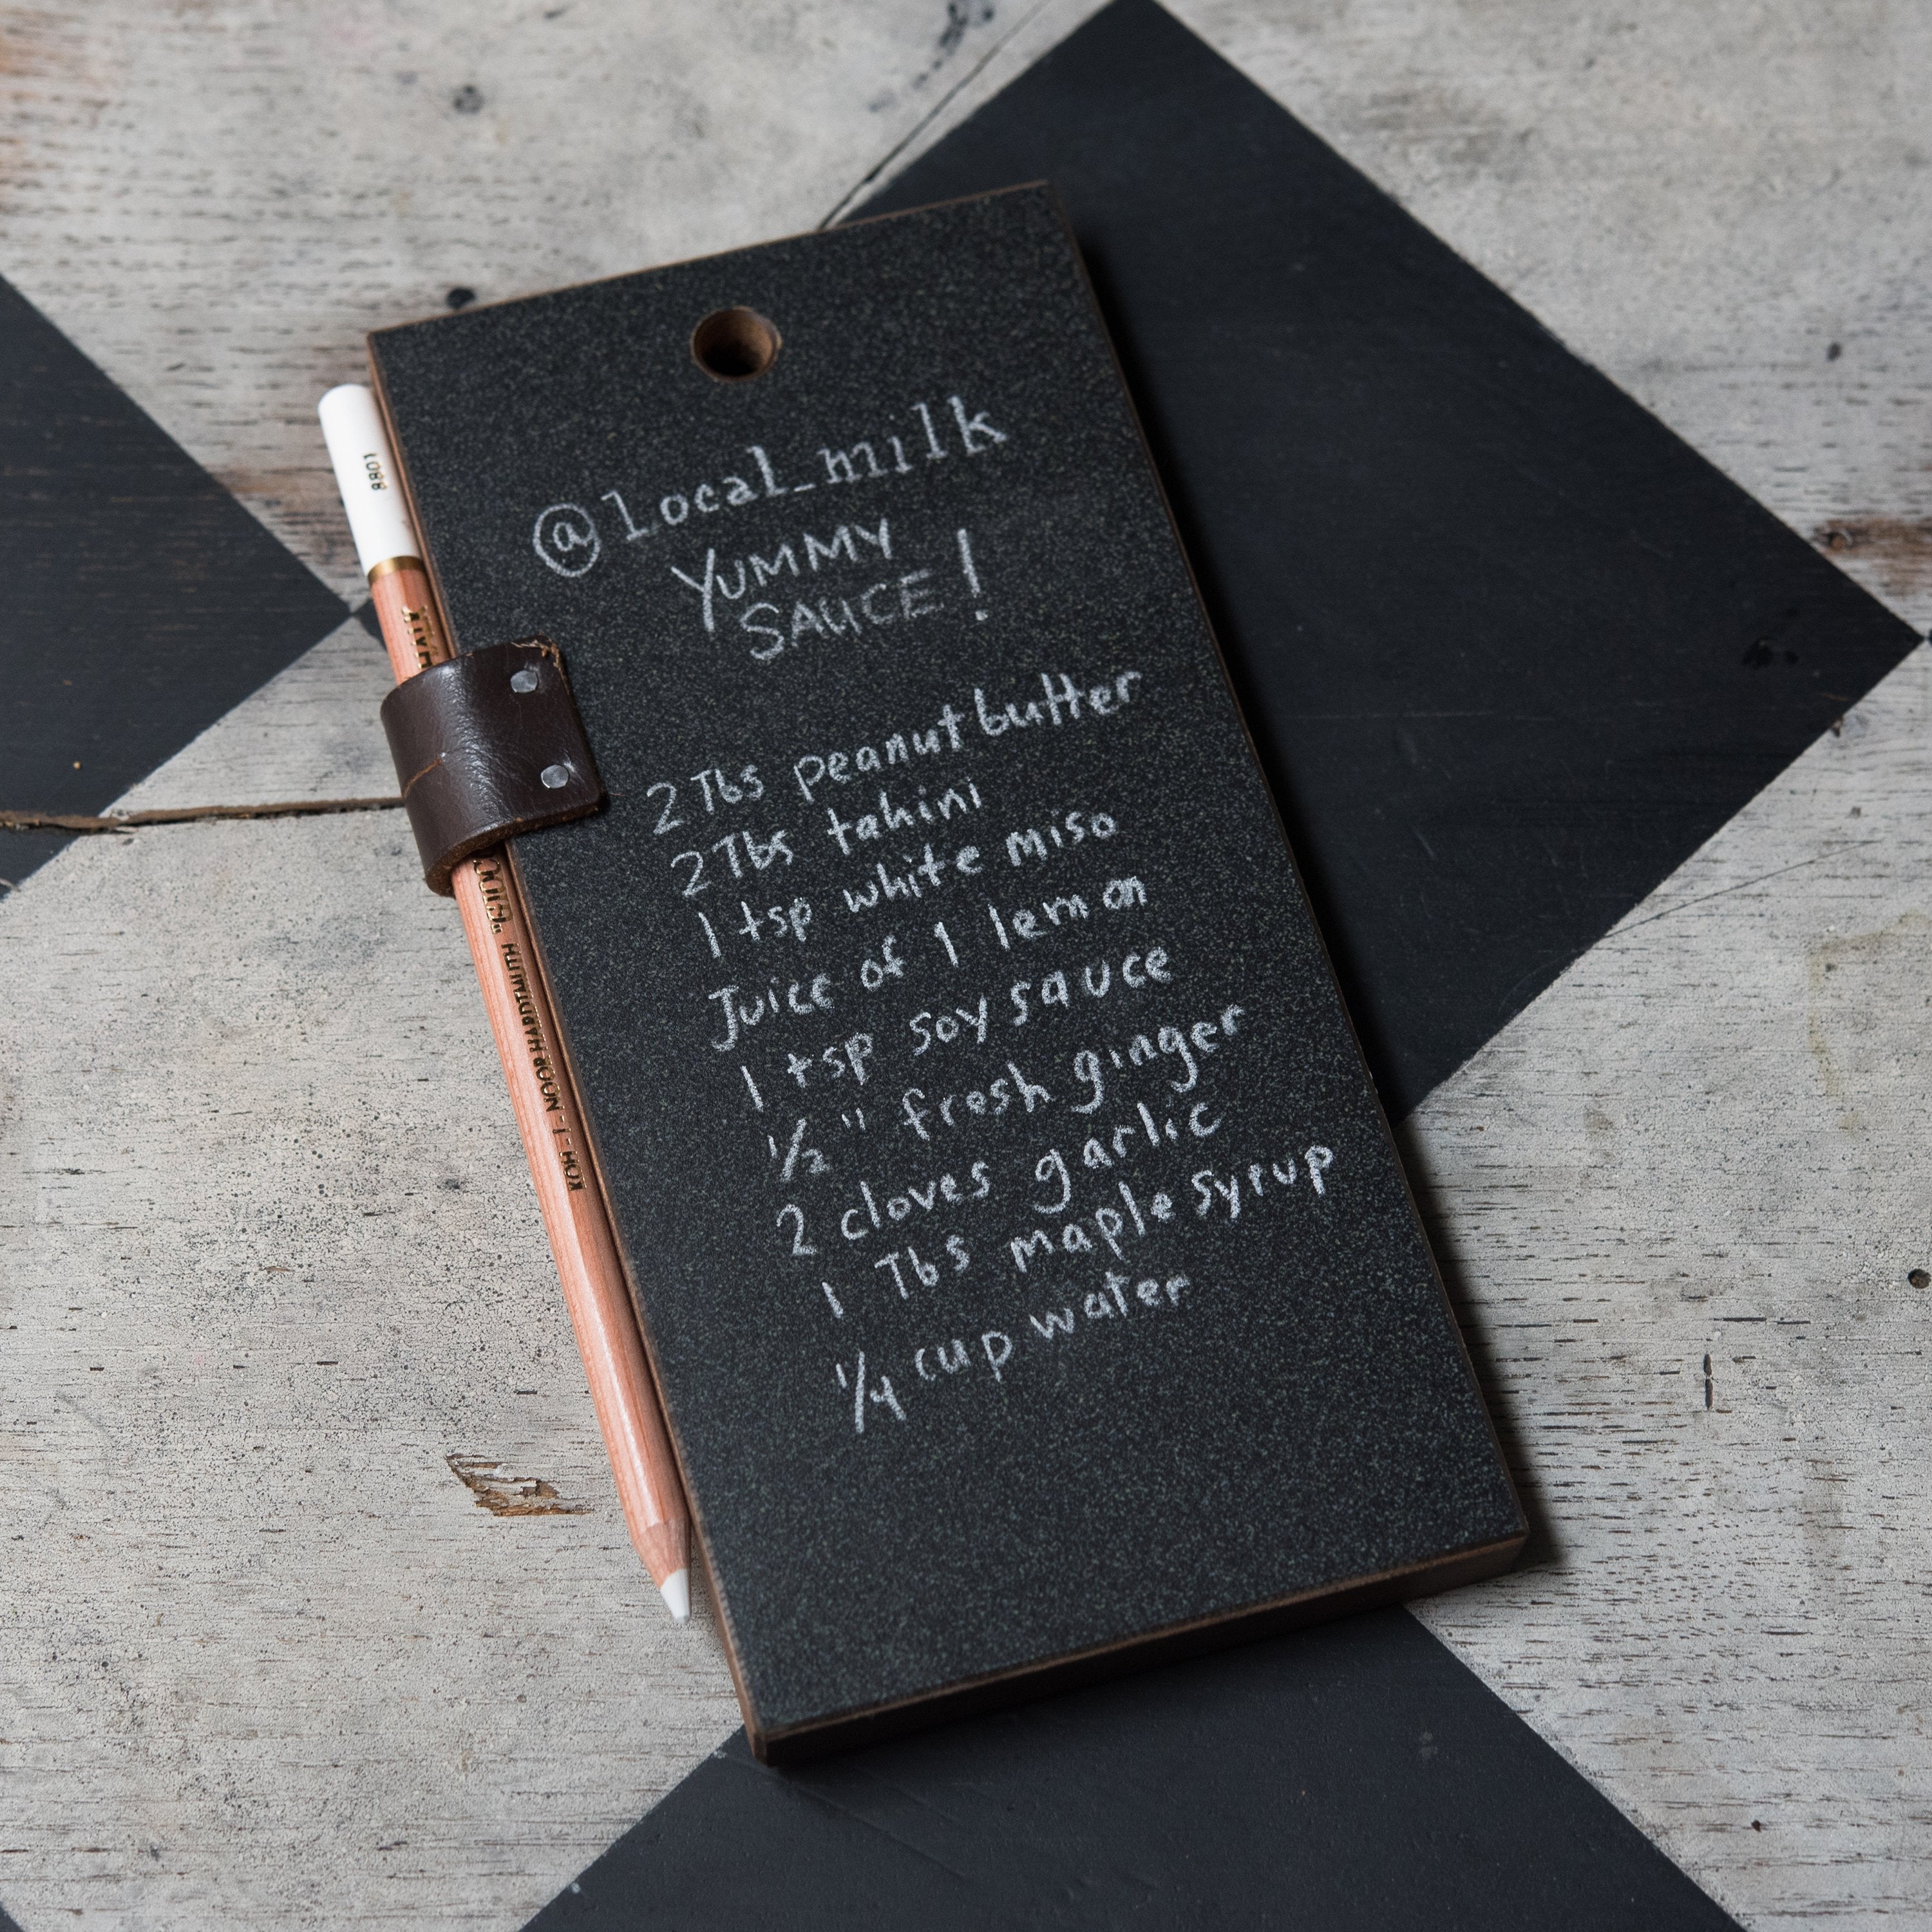 @local_milk
YUMMY
SAUCE!
2 Tbs peanut butter
2 Tbs tahini
1 tsp white miso
Juice of 1 lemon
1 tsp soy sauce
1/2" fresh ginger
2 cloves garlic
1 Tbs maple syrup
1/4 cup water
8801
HARDTMUTH
KOH-I-NOOR